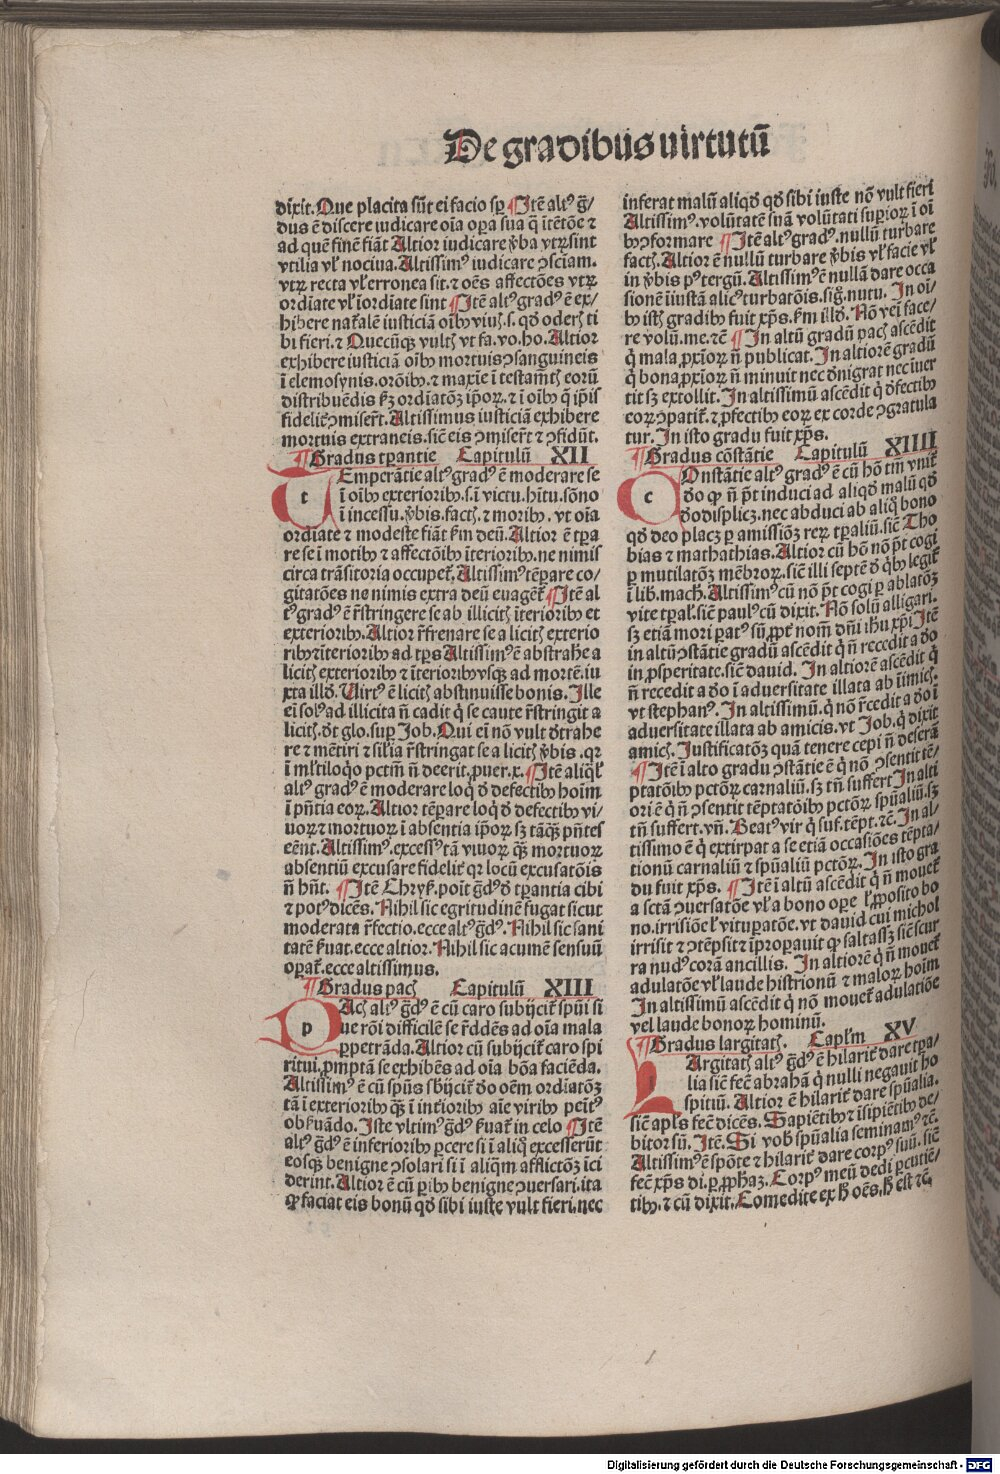 De gradibus uirtutū
dixit. Que placita sūt ei facio sp̄ ¶ Itē altꝰ ḡ/
dus ē discere iudicare oīa oꝑa sua q̄ ītētōe ⁊
ad quē finē fiāt Altior iudicare v̄ba vtꝝ sint
vtilia vl̓ nociua. Altissimꝰ iudicare ꝯsciam.
vtꝝ recta vl̓ erronea sit. ⁊ oēs affectōes vtꝝ
ordīate vl̓ īordiate sint ¶ Itē altꝰ gradꝰ ē ex/
hibere nat̓alē iusticiā oībꝫ viuis. s. qd̓ oderis ti
bi fieri. ⁊ Quecūqꝫ vultis vt fa. vo. ho. Altior
exhibere iusticiā oībꝫ mortuis ꝯsanguineis
ī elemosynis. orōibꝫ. ⁊ maxīe ī testam̄tis eorū
distribuēdis ẜꝫ ordiatōꝫ ip̄oꝝ. ⁊ ī oībꝫ q̄ ip̄is
fidelit̓ ꝯmiser̄t. Altissimus iusticiā exhibere
mortuis extraneis. sic̄ eis ꝯmiser̄t ⁊ ꝯfidūt.
¶ Gradus tꝑantie Capitulū XII
tEmperātie altꝰ gradꝰ ē moderare se
ī oībꝫ exteriorībꝫ. s. ī victu. hītu. sōno
ī incessu. v̄bis. factis. ⁊ moribꝫ. vt oīa
ordiate ⁊ modeste fiāt ẜm deū. Altior ē tꝑa
re se ī motibꝫ ⁊ affectōibꝫ īterioribꝫ. ne nimis
circa trāsitoria occupet̓. Altissimꝰ tēꝑare co/
gitatōes ne nimis extra deū euagēt̓ ¶ Itē al
tꝰ gradꝰ ē r̄stringere se ab illicitis īterioribꝫ et
exterioribꝫ. Altior r̄frenare se a licitis exterio
ribꝫ ⁊ īterioribꝫ ad tꝑs Altissimꝰ ē abstrahe a
licitis exterioribꝫ ⁊ īterioribꝫ vsqꝫ ad mortē. iu
xta illd̓. Uirtꝰ ē licitis abstinuisse bonis. Ille
ei solꝰ ad illicita n̄ cadit q̓ se caute r̄stringit a
licitis. d̓t glo. suꝑ Job. Qui ei nō vult d̓trahe
re ⁊ mētiri ⁊ sil̓ia r̄stringat se a licitis v̄bis. qꝛ
ī ml̓tiloq̓o pctm̄ n̄ deerit. ꝓuer. x. ¶ Itē aliq̓l̓
altꝰ gradꝰ ē moderare loq̓ d̓ defectibꝫ hoīm
ī pn̄tia eoꝝ. Altior tēꝑare loq̓ d̓ defectibꝫ vi/
uoꝝ ⁊ mortuoꝝ ī absentia ip̄oꝝ sꝫ tāqꝫ pn̄tes
eēnt. Altissimꝰ. excessꝰ tā viuoꝝ qꝫ mortuoꝝ
absentiū excusare fidelit̓ qꝛ locū excusatōis
n̄ hn̄t. ¶ Itē Chrys̓. poīt ḡdꝰ d̓ tꝑantia cibi
⁊ potꝰ dicēs. Nihil sic egritudinē fugat sicut
moderata r̄fectio. ecce altꝰ ḡdꝰ. Nihil sic sani
tatē ẜuat. ecce altior. Nihil sic acumē sensuū
oꝑat̓. ecce altissimus.
¶ Gradus pacis Capitulū XIII
pAcis altꝰ ḡdꝰ ē cū caro subijcit̓ spūi si
ue rōi difficilē se r̄ddēs ad oīa mala
ꝑpetrāda. Altior cū subijcit̓ caro spi
ritui. ꝓmptā se exhibēs ad oīa bōa faciēda.
Altissimꝰ ē cū spūs sb̓ijcit̓ d̓o oēm ordiatōꝫ
tā ī exterioribꝫ qꝫ ī int̓ioribꝫ aīe viribꝫ peitꝰ
obẜuādo. Iste vltimꝰ ḡdꝰ ẜuat̓ in celo ¶ Itē
altꝰ ḡdꝰ ē inferioribꝫ ꝑcere si ī aliq̓ excesserūt
eosqꝫ benigne ꝯsolari si ī aliq̓m afflictōꝫ ici
derint. Altior ē cū ꝑibꝫ benigne ꝯuersari. ita
ꝙ faciat eis bonū qd̓ sibi iuste vult fieri. nec
inferat malū aliqd̓ qd̓ sibi iuste nō vult fieri
Altissimꝰ. volūtatē suā volūtati suꝑioꝝ ī oī
bꝫ ꝯformare ¶ Itē altꝰ gradꝰ. nullū turbare
factis. Altior ē nullū turbare v̄bis vl̓ facie vl̓
in v̄bis pꝰ tergū. Altissimꝰ ē nullā dare occa
sionē iiustā alicꝰ turbatōis. sig̓. nutu. In oī/
bꝫ istis gradibꝫ fuit xp̄s. ẜm illd̓. Nō vei face/
re volū. me. ⁊c̄ ¶ In altū gradū pacis ascēdit
q̓ mala ꝓxīoꝝ n̄ publicat. In altiorē gradū
q̓ bona ꝓxīoꝝ n̄ minuit nec d̓nigrat nec iuer
tit sꝫ extollit. In altissimū ascēdit q̓ d̓fectibꝫ
eoꝝ ꝯpatit̓. ⁊ ꝓfectibꝫ eoꝝ ex corde ꝯgratula
tur. In isto gradu fuit xp̄s.
¶ Gradus cōstātie Capitulū XIIII
cOnstātie altꝰ gradꝰ ē cū hō tm̄ vnit̓
d̓o ꝙ n̄ p̄t induci ad aliqd̓ malū qd̓
d̓o displicꝫ. nec abduci ab aliq̓ bono
qd̓ deo placꝫ ꝑ amissiōꝫ reꝝ tꝑaliū. sic̄ Tho
bias ⁊ mathathias. Altior cū hō nō p̄t cogi
ꝑ mutilatōꝫ mēbroꝝ. sic̄ illi septē d̓ q̓bꝫ legit̓
ī lib. mach. Altissimꝰ cū nō p̄t cogi ꝑ ablatōꝫ
vite tꝑal̓. sic̄ paulꝰ cū dixit. Nō solū alligari.
sꝫ etiā mori ꝑatꝰ sū. ꝓpt̓ nom̄ dn̄i ihū xp̄i. Itē
in altū ꝯstātie gradū ascēdit q̓ n̄ recedit a d̓o
in ꝓsperitate. sic̄ dauid. In altiorē ascēdit q̓
n̄ recedit a d̓o ī aduersitate illata ab īimicis.
vt stephanꝰ. In altissimū. q̓ nō r̄cedit a d̓o ī
aduersitate illata ab amicis. vt Job. q̓ dixit
amicis. Justificatōꝫ quā tenere cepi n̄ deserā
¶ Itē ī alto gradu ꝯstātie ē q̓ nō ꝯsentit tē/
ptatōibꝫ pctōꝝ carnaliū. sꝫ tn̄ suffert In alti
ori ē q̓ n̄ ꝯsentit tēptatōibꝫ pctōꝝ spūaliū. sꝫ
tn̄ suffert. vn̄. Beatꝰ vir q̓ suf. tēpt. ⁊c̄. In al/
tissimo ē q̓ extirpat a se etiā occasiōes tēpta/
tionū carnaliū ⁊ spūaliū pctōꝝ. In isto gra
du fuit xp̄s. ¶ Itē ī altū ascēdit q̓ n̄ mouet̓
a sctā ꝯuersatōe vl̓ a bono oꝑe l̓ ꝓposito bo
no. irrisiōe l̓ vituꝑatōe. vt dauid cui michol
irrisit ⁊ ꝯtēpsit ⁊ īproꝑauit ꝙ saltassꝫ sic̄ scur
ra nudꝰ corā ancillis. In altiorē q̓ n̄ mouet̓
adulatōe vl̓ laude histrionū ⁊ maloꝝ hoīm
In altissimū ascēdit q̓ nō mouet̓ adulatiōe
vel laude bonoꝝ hominū.
¶ Gradus largitatis. Caplm̄ XV
lArgitatis altꝰ ḡdꝰ ē hilarit̓ dare tꝑa/
lia sic̄ fec̄ abrahā q̓ nulli negauit ho
spitiū. Altior ē hilarit̓ dare spūalia.
sic̄ apl̓s fec̄ dicēs. Sapiētibꝫ ⁊ isipiētibꝫ de/
bitor sū. Itē. Si vob̓ spūalia seminamꝰ ⁊c̄.
Altissimꝰ ē spōte ⁊ hilarit̓ dare corpꝰ suū. sic̄
fec̄ xp̄s di. ꝑ ꝓph̓az. Corpꝰ meū dedi ꝑcutiē/
tibꝫ. ⁊ cū dixit. Comedite ex h̓ oēs. h̓ est ⁊c̄
Digitalisierung gefördert durch die Deutsche Forschungsgemeinschaft - DFG